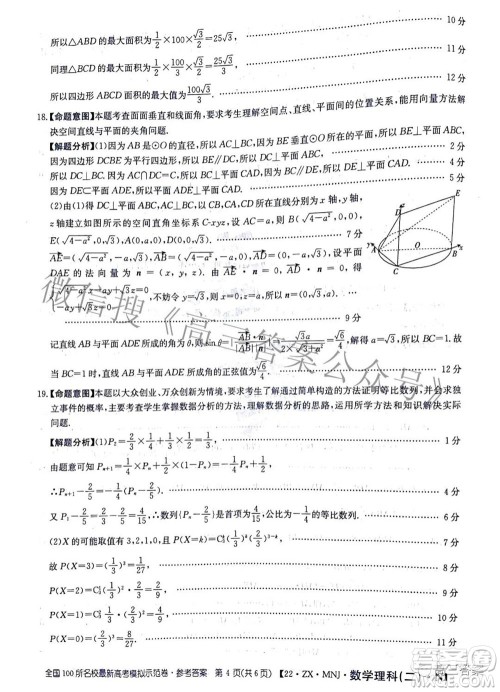 所以△ABD的最大面积为1/2×100×√3/2=25√3. …… 10分
同理△BCD的最大面积为1/2×100/3×√3/2=25√3/3. …… 11分
所以四边形ABCD的面积的最大值为 …… 12分
18.【命题意图】本题考查面面垂直和线面角,要求考生理解空间点、直线、平面间的位置关系,能用向量方法解
决空间直线与平面的夹角问题.
【解题分析】(1)因为AB是⊙O的直径,所以AC⊥BC,
因为四边形DCBE为平行四边形,所以BE∥DC,所以DC⊥
所以BC⊥DC.因为AC∩DC=C,所以BC⊥平面ACD. …… 4分
因为DE⊂平面ADE,所以平面⊥平面CAD. …… 5分
(2)由(1)得DC⊥平面ABC,AC⊥BC,以CA,CB,CD所在直线分别为x轴,y轴,
z轴建立如图所示的空间直角坐标系C-xyz,设AC=a,则B(√4-a²,0,0),
E(√4-a²,0,√3),A(0,a,0),D(0,0,√3). …… 7分
AE=(√4-a²,-a,√3),AB=(√4-a²,-a,0),AD=(0,-a,√3),设平面
DAE的法向量为n=(x,y,z).由 n=0,得
√4-a²x-ay+√3z=0
-ay+√3z=0 ,不妨令 …… 9分
记直线AB与平面ADE所成的角为θ,则sin θ=|AB·n|/|AB||n|=√3a/2√a²+3=√6/4,解得a=√3,所以BC=1.故
当BC=1时,直线AB与平面ADE所成角的正弦值为√6/4. …… 12分
19.【命题意图】本题以大众创业、万众创新为情境,要求考生了解通过简单构造的方法证明等比数列,并会求独
立事件的概率,主要考查学生掌握数据分析的方法,理解数据分析的思路,运用所学知识和方法解决实际
问题.
【解题分析】(1)P₂=2/3×1/4+1/3×1/2=1/3. …… 1分
由题意可知Pₙ₊₁=1/4×Pₙ+1/2×(1-Pₙ),
所以Pₙ₊₁-2/5=-1/4(Pₙ-2/5). …… 4分
又P₁-2/5=4/15,∴数列{Pₙ-2/5}是首项为4/15,公比为-1/4的等比数列. …… 6分
(2)X的可能取值有3,2,1,0,且P(X=k)=C₃ᵏ(1/3)ᵏ(2/3)³⁻ᵏ,
故P(X=0)=(2/3)³=8/27, …… 8分
P(X=1)=C₃¹(1/3)(2/3)²=4/9, …… 9分
P(X=2)=C₃²(1/3)²(2/3)=2/9, …… 10分
P(X=3)=(1/3)³=1/27. …… 11分
全国100所名校最新高考模拟示范卷·参考答案 第4页(共6页) 【22·ZX·MNJ·数学理科(二)
微信搜《高三答案公众号》